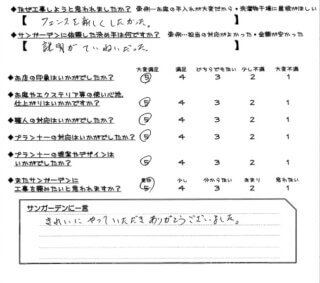 ◆なぜ工事しようと思われましたか？
【 フェンスを新しくしたかった。 】
◆サンガーデンに依頼した決め手は何ですか？
【 説明がていねいだった。 】
大変満足 満足 どちらでもない 少し不満 大変不満
◆お店の印象はいかがでしたか？ 5 4 3 2 1
◆お庭やエクステリア等の使い心地、
仕上がりはいかがですか？ 5 4 3 2 1
◆職人の対応はいかがでしたか？ 5 4 3 2 1
◆プランナーの対応はいかがでしたか？ 5 4 3 2 1
◆プランナーの提案やデザインは
いかがでしたか？ 5 4 3 2 1
少し 分からない あまり 思わない
◆またサンガーデンに
工事を頼みたいと思われますか？ 5 4 3 2 1
サンガーデンに一言
きれいにやっていただきありがとうございました。